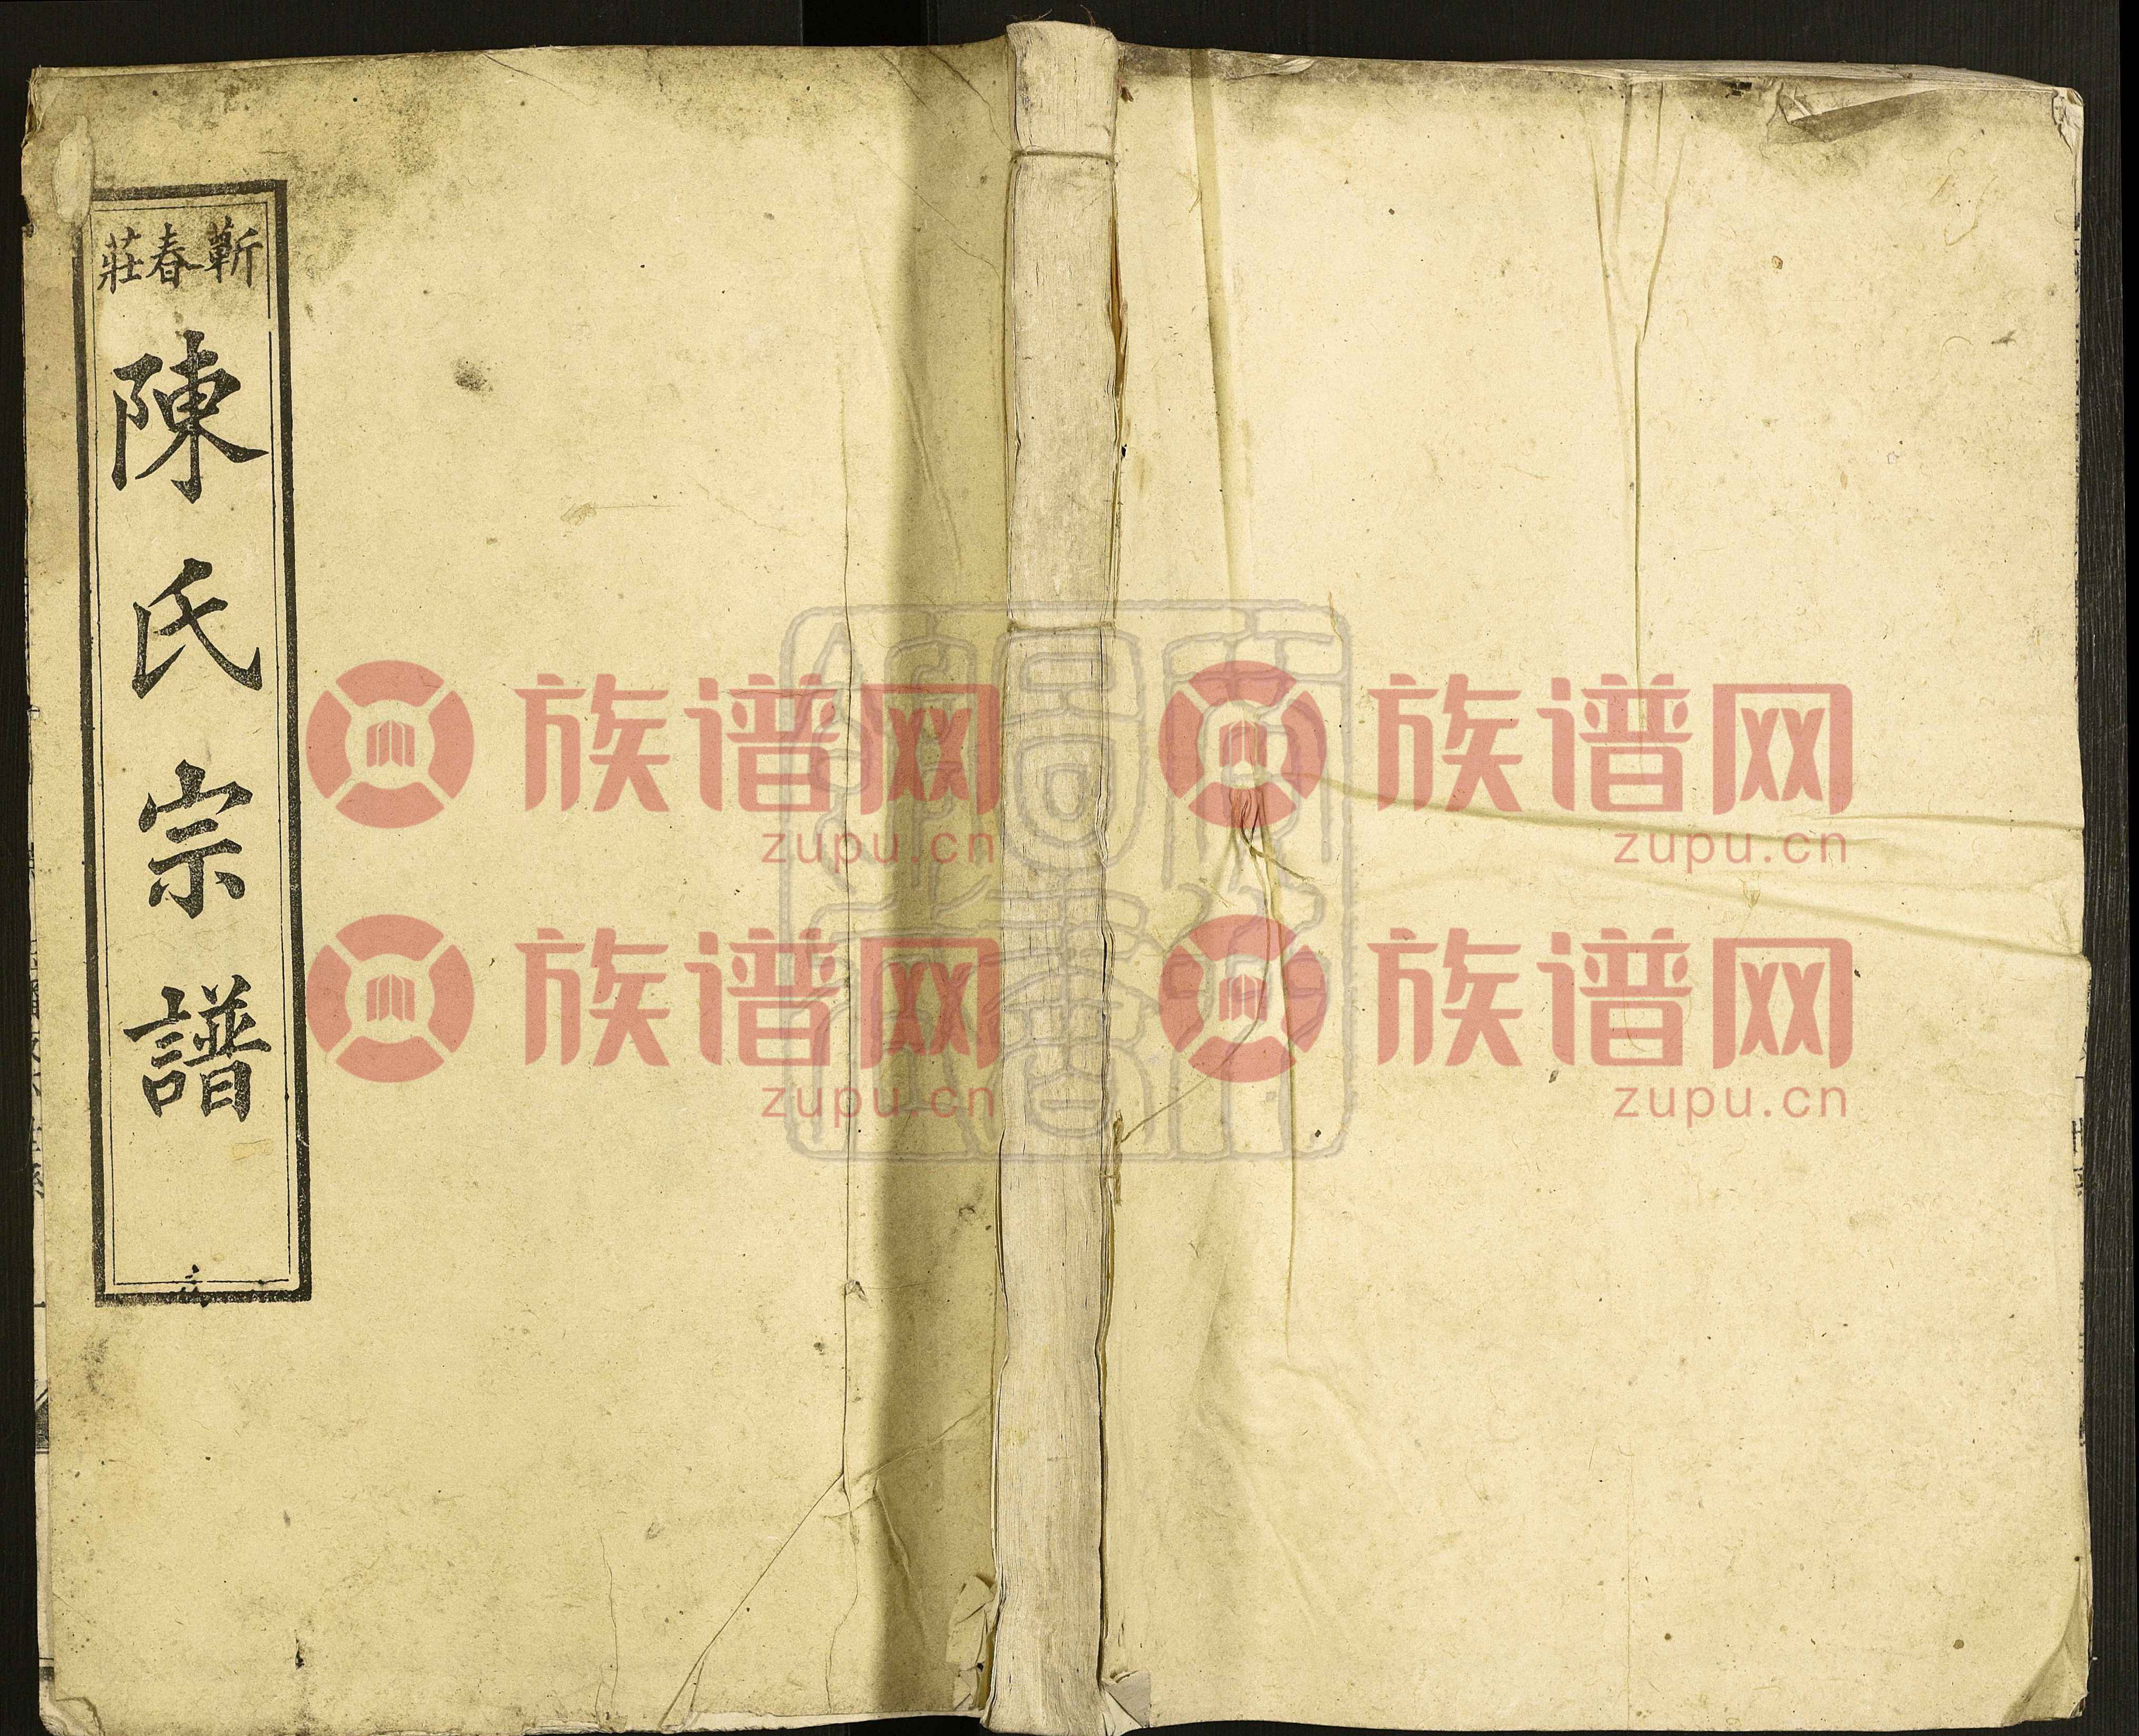 蘄春莊
陳氏宗譜
族谱网
zupu.cn
族谱网
zupu.cn
族谱网
zupu.cn
族谱网
zupu.cn